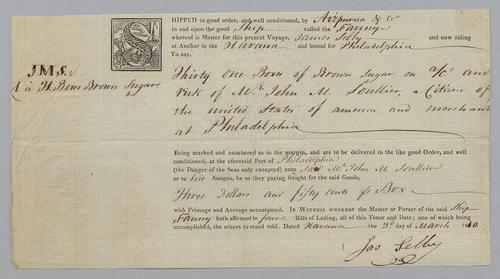 SHIPPED in good order, and well conditioned, by Aizpurua & Co
in and upon the good Ship called the Fanny
whereof is Master for this present Voyage, James Selby and now riding
at Anchor in the Havana and bound for Philadelphia
To say,
J.M.S.
1 à 31. Boxes Brown Sugar
Thirty One Boxes of Brown Sugar on a/c and
risk of Mr. John M. Soullier, a Citizen of
the united States of america and merchant
at Philadelphia
Being marked and numbered as in the margin, and are to be delivered in the like good Order, and well
conditioned, at the aforesaid Port of Philadelphia
(the Danger of the Seas only excepted) unto Said Mr. John M. Soullier
or to his Assigns, he or they paying freight for the said Goods,
Three Dollars and fifty cents Box
with Primage and Average accustomed. In Witness whereof the Master or Purser of the said Ship
Fanny hath affirmed to four Bills of Lading, all of this Tenor and Date; one of which being
accomplished, the others to stand void. Dated Havana the 3d day of March 1810
Jas Selby